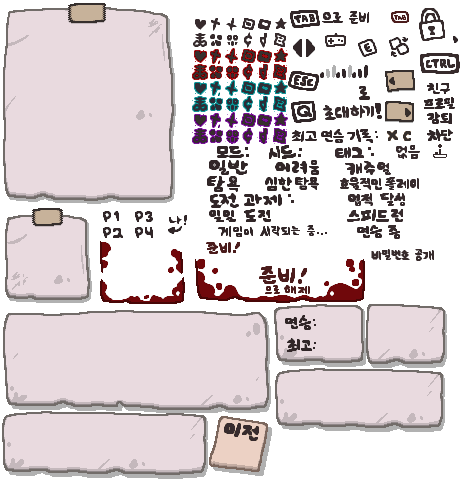 TAB 으로 준비
TAB
E
ESC
CTRL
로
Q 초대하기!
친구
프로필
강퇴
차단
최고 연승 기록: X C
모드: 시드: 태그: 없음
일반 어려움 캐주얼
탐욕 심한 탐욕 효율적인 플레이
도전 과제: 업적 달성
일일 도전 스피드런
게임이 시작되는 중... 연승 중
P1 P3 나!
P2 P4
준비!
비밀번호 공개
준비!
으로 해제
연승:
최고:
이전